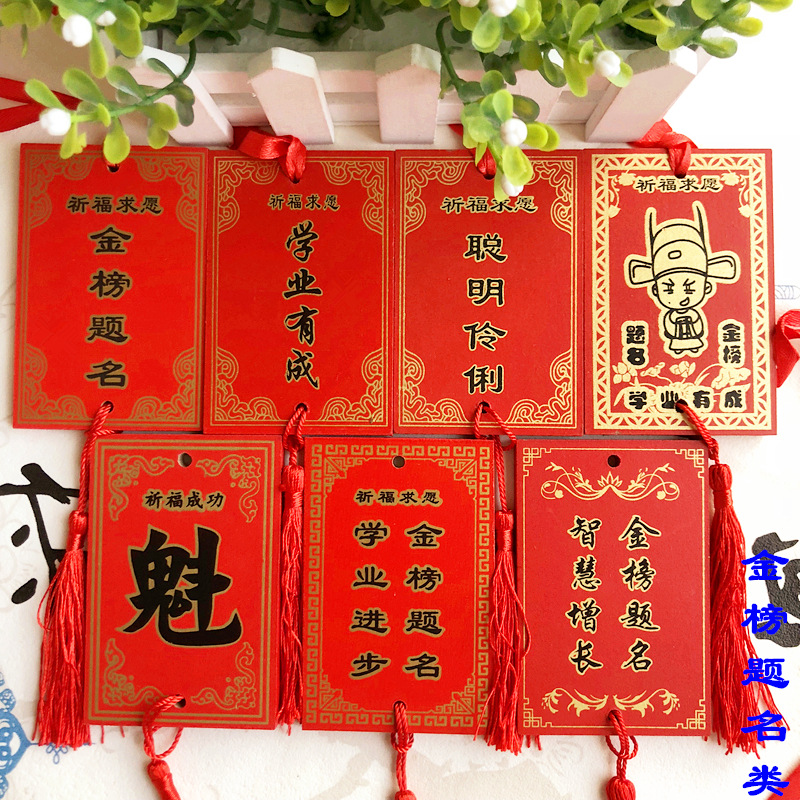 祈福求愿
金榜题名
祈福求愿
学业有成
祈福求愿
聪明伶俐
祈福求愿
金榜
题名
学业有成
祈福成功
魁
祈福求愿
金榜题名
学业进步
金榜题名
智慧增长
金榜题名类